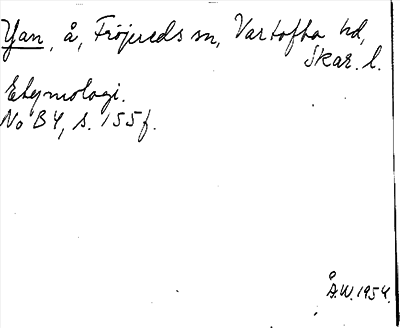 Yan, å, Fröjereds sn, Vartofta hd,
Skar. l.
Etymologi.
No B4, s. 155 f.
Å.W. 1954.